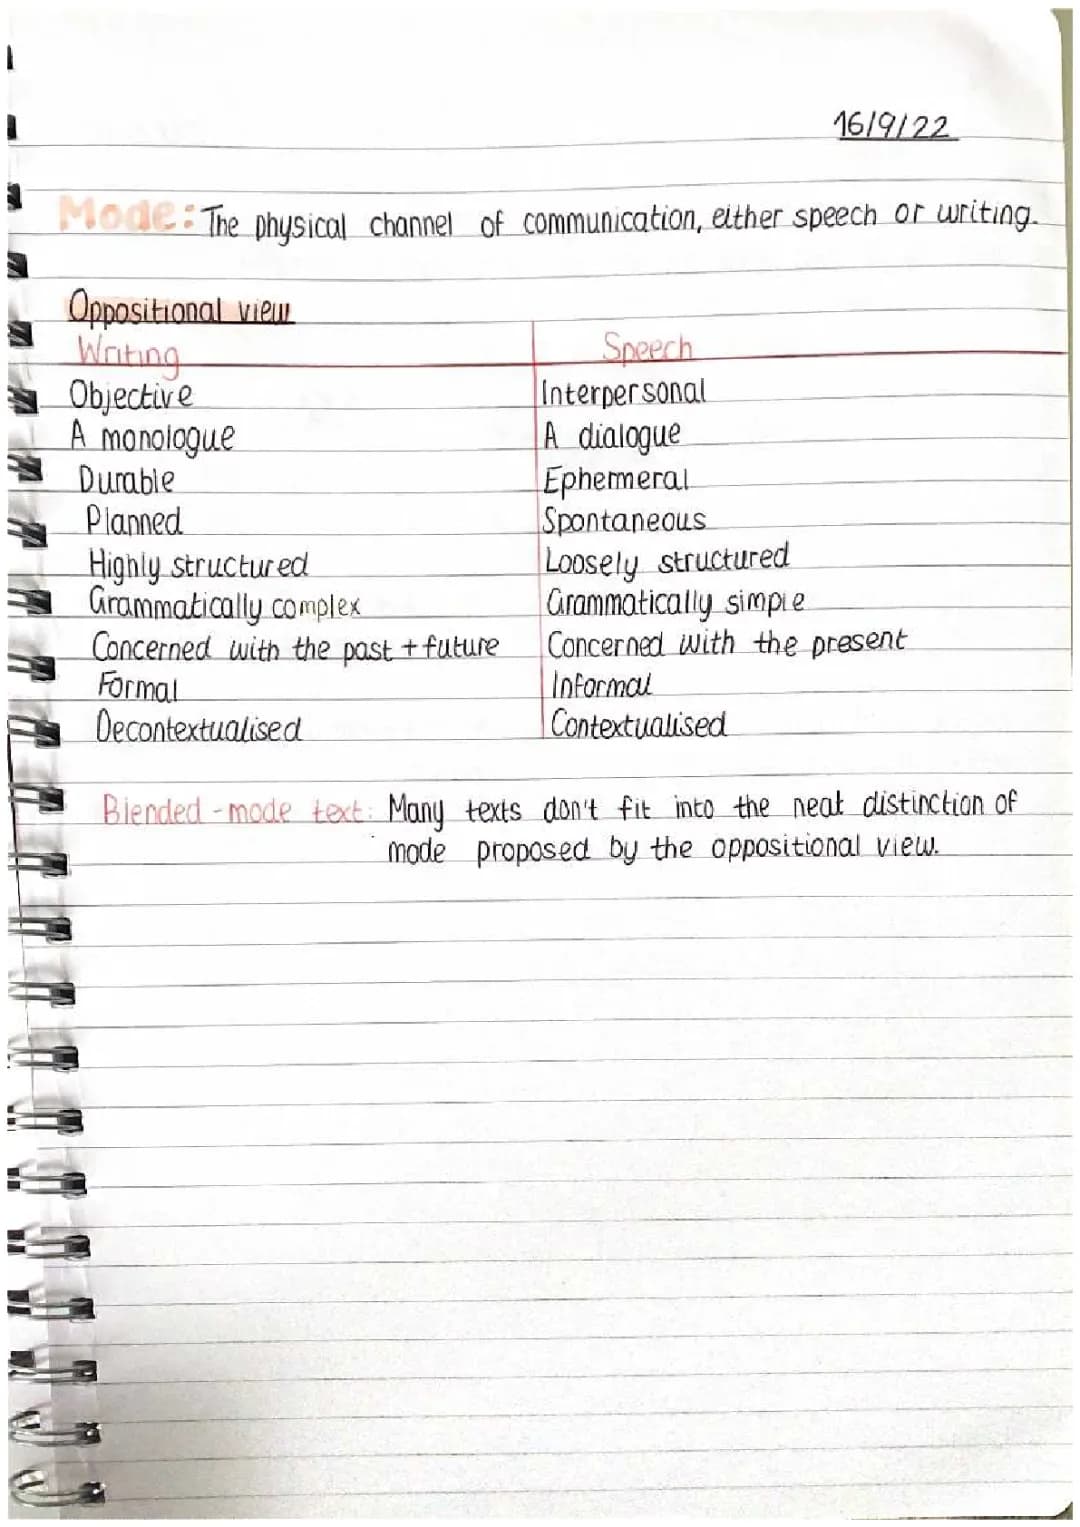 16/9/22
Mode: The physical channel of communication, either speech or writing.
Oppositional view
Writing Speech
Objective Interpersonal
A monologue A dialogue
Durable Ephemeral
Planned Spontaneous
Highly structured Loosely structured
Grammatically complex Grammatically simple
Concerned with the past + future Concerned with the present
Formal Informal
Decontextualised Contextualised
Blended-mode text: Many texts don't fit into the neat distinction of
mode proposed by the oppositional view.